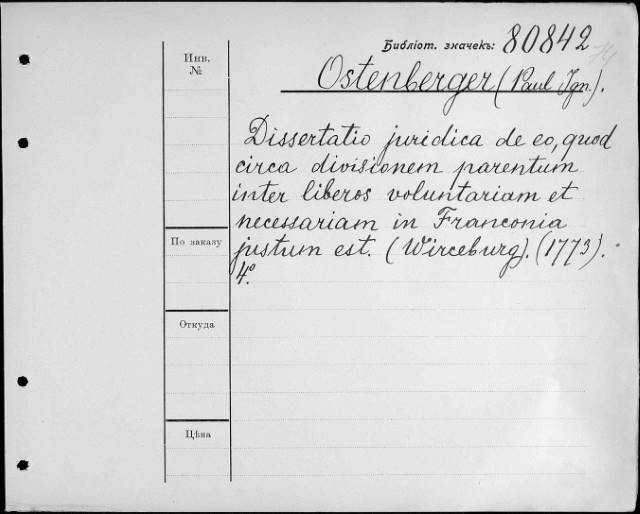 Библіот. значекъ: 80842
Инв.
№
Ostenberger (Paul Ign.).
Dissertatio juridica de eo, quod
circa divisionem parentum
inter liberos voluntariam et
necessariam in Franconia
justum est. (Wirceburg). (1773).
4º.
По заказу
Откуда
Цѣна